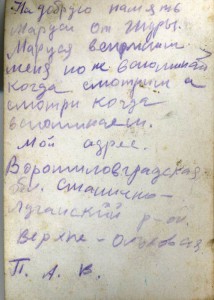 На добрую память
Маруси от Шуры.
Маруся вспомни
меня но не вспоминай
когда смотриш а
смотри когда
вспоминаеш.
Мой адрес.
Ворошиловградская
обл. Станично-
Луганский р-он.
Верхне-Ольховая
П. А. В.